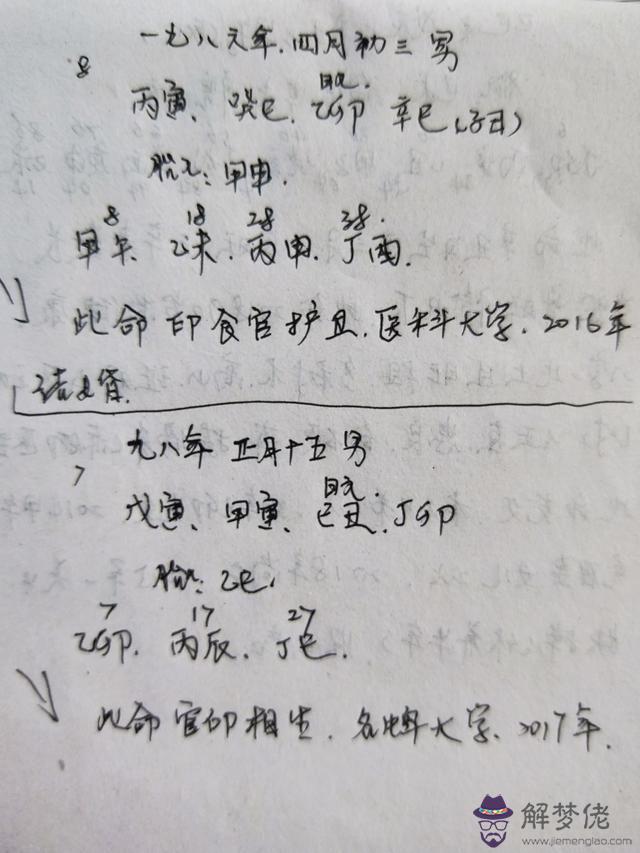 一九八六年.四月初三男
8
日元.
丙寅、癸巳、乙卯 辛巳(子丑)
胎元:甲申.
8 18 28 38.
甲午、乙未、丙申、丁酉.
此命印食官护卫.医科大学、2016年
结婚.
九八年 正月十五男
7
日元:
戊寅、甲寅、己丑、丁卯
胎元:乙巳,
7 17 27
乙卯、丙辰、丁巳.
此命官印相生.名牌大学、2017年.
解梦佬
www.jiemenglao.com